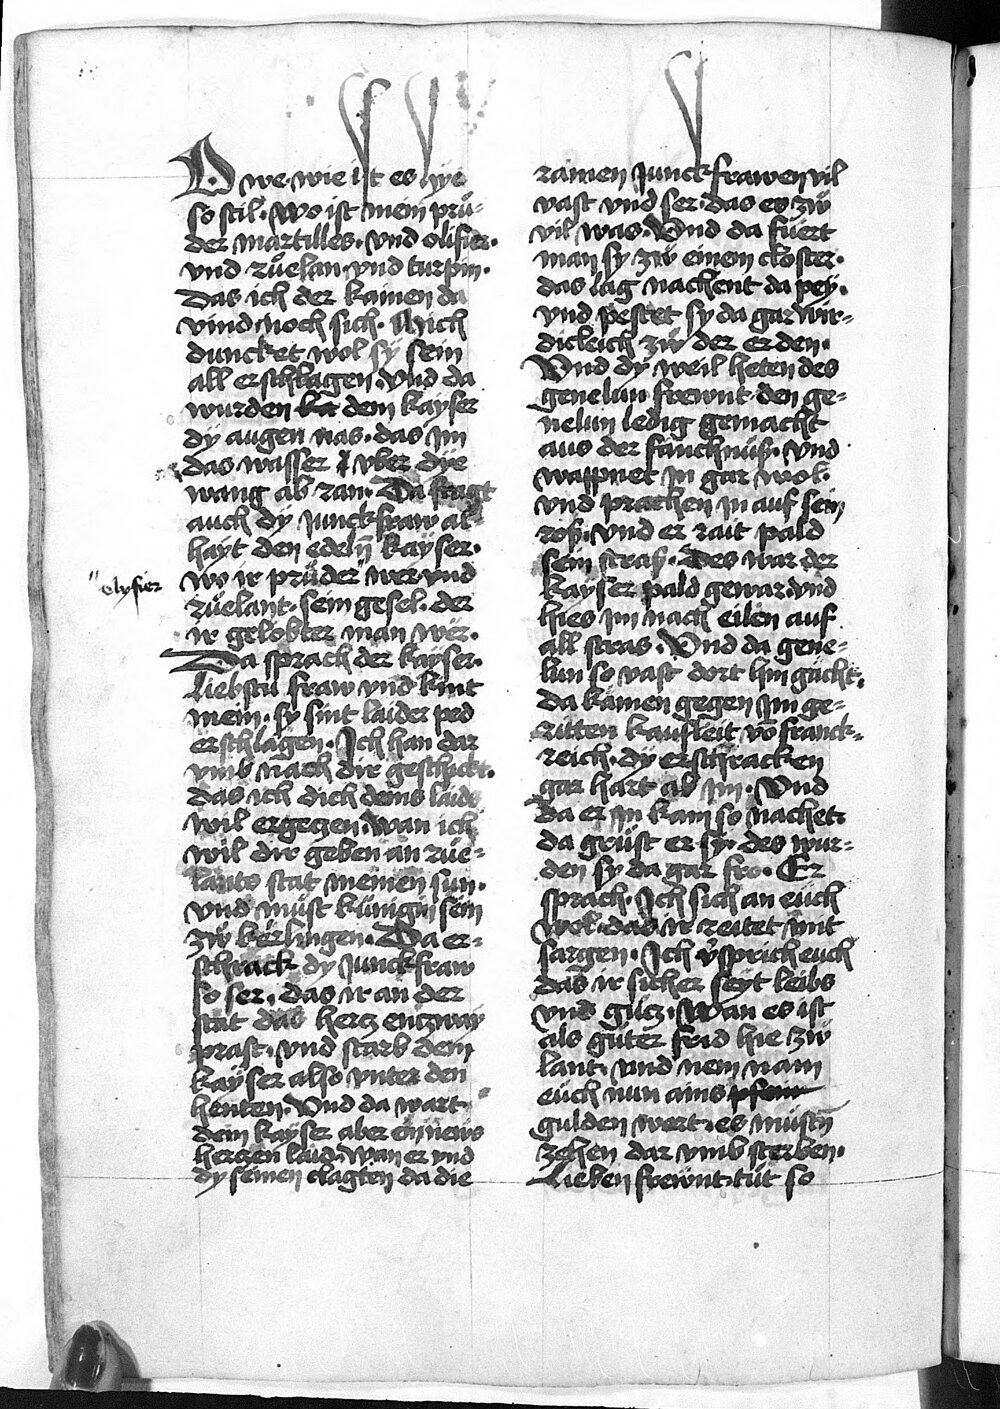 O we wie ist es hye
so stil. Wo ist mein prů-
der martilles. vnd olifier.
vnd růelan. vnd turpin.
Das ich der kainen da
vind noch sich. Mich
duncket wol sy sein
all erschlagen. Vnd da
wurden ka dem kayser
dy augen nas. das im
das wasser vber dye
wang ab ran. Da fragt
auch dy junckfraw al-
hayt den edeln kayser.
wo ir průder " wer vnd
" olyfier
růelant. sein gesel. der
ir gelobter man wer.
Da sprach der kayser.
Liebstu fraw vnd kint
mein. sy sint laider ped
erschlagen. Ich han dar
vmb nach dir geschickt.
das ich dich deins laids
wil ergeczen. Wan ich
wil dir geben an růe-
lants stat meinen sun.
vnd must künigin sein
zů kerlingen. Da er-
schrack dy junckfraw
so ser. das ir an der
stat das hercz enczway
prast. vnd starb dem
kayser also vnter den
henten. Vnd da wart
dem kayser aber ein news
herczen laid. Wan er vnd
dy seinen clagten da die
rainen junckfrawen vil
vast vnd ser. das es zů
vil was. Vnd da fuert
man sy zů einem closter.
das lag nachent da pey.
vnd pestet sy da gar wir-
dicleich zů der erden.
Vnd dy weil heten des
genelun frewnt. den ge-
nelun ledig gemacht
aus der fanchnüß. vnd
wappnet in gar wol.
vnd prachen in auf sein
roß. vnd er rait pald
sein straß. Des war der
kayser pald gewar. vnd
hies im nach eilen auf
all stras. Vnd da gene-
lun so vast dort hin gächt.
da kamen gegen im ge-
ritten kaufleit vō franck-
reich. dy erschracken
gar hart ab im. Vnd
da er in kam so nachet.
da grüst er sy. des wur-
den sy da gar fro. Er
sprach. Ich sich an euch
wol. das ir reitet mit
sargen. Ich v̓sprich euch
das ir sicher seyt leibs
vnd gücz. Wan es ist
als güter frid hie zů
lant. vnd nem nam
euch nun ains pfenn
gulden wert. es müstn̄
zehen dar vmb sterben.
Lieben frewnt. tüt so